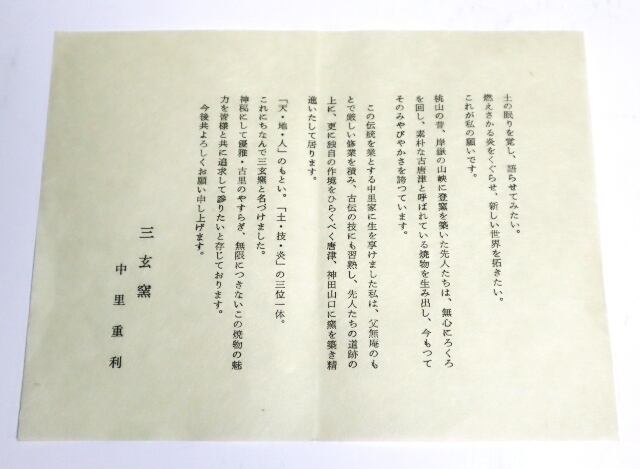 土の眠りを覚し、語らせてみたい。
燃えさかる炎をくぐらせ、新しい世界を拓きたい。
これが私の願いです。
桃山の昔、岸嶽の山峡に登窯を築いた先人たちは、無心にろくろ
を回し、素朴な古唐津と呼ばれている焼物を生み出し、今もつて
そのみやびやかさを誇つています。
この伝統を業とする中里家に生を享けました私は、父無庵のも
とで厳しい修業を積み、古伝の技にも習熟し、先人たちの道跡の
上に、更に独自の作境をひらくべく唐津、神田山口に窯を築き精
進いたして居ります。
「天・地・人」のもとい。「土・技・炎」の三位一体。
これにちなんで三玄窯と名づけました。
神秘にして優雅・古里のやすらぎ、無限につきないこの焼物の魅
力を皆様と共に追求して參りたいと存じております。
今後共よろしくお願い申し上げます。
三玄窯
中里重利